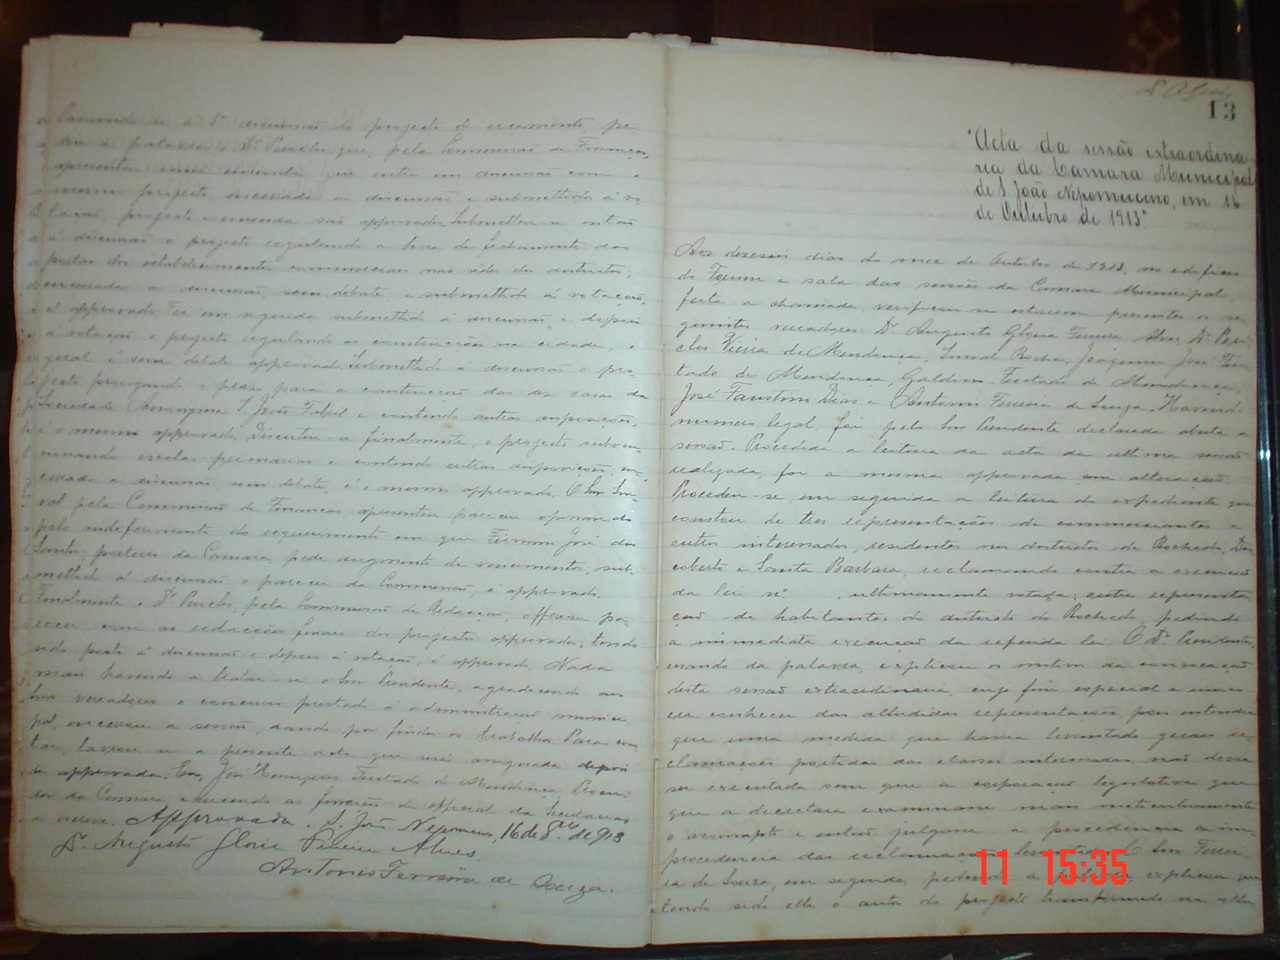 passando-se á 2ª discussão do projecto de orçamento, pe-
diu a palavra o Dr. Pericles que, pela Commissão de Finanças,
apresentou uma emenda que entra em discussão com o
mesmo projecto; encerrada a discussão e submettidos á vo-
tação, projecto e emenda são approvados. Submetteu-se então
á discussão o projecto regulando a hora de fechamento das
portas dos estabelecimentos commerciaes nas sédes dos districtos;
encerrada a discussão, sem debate, e submettido á votação,
é approvado. Foi em seguida submettido á discussão e depois
á votação o projecto regulando as construcções na cidade, o
qual é sem debate approvado. Submettido á discussão o pro-
jecto prorogando o praso para a construcção das dez casas da
Sociedade Anonyma S. João Fabril e contendo outras disposições,
é o mesmo approvado. Discutiu-se finalmente, o projecto subven-
cionando escolas primarias e contendo outras disposições; en-
cerrada a discussão, sem debate, é o mesmo approvado. O Snr. Sin-
val pela Commissão de Finanças apresenta parecer opinando
pelo indeferimento do requerimento em que Firmino José dos
Santos, porteiro da Camara, pede augmento de vencimentos; sub-
mettido á discussão o parecer da Commissão, é approvado.
Finalmente o Dr. Pericles, pela Commissão de Redacção, offerece pa-
recer com as redacções finaes dos projectos approvados, tendo
sido posto á discussão e depois á votação, é approvado. Nada
mais havendo a tratar-se o Snr. Presidente, agradecendo aos
Snrs. vereadores o concurso prestado á administração munici-
pal, encerrou a sessão, dando por findos os trabalhos. Para cons-
tar, lavrou-se a presente acta que será assignada depois
de approvada. Eu, José Henriques Furtado de Mendonça, Procura-
dor da Camara, exercendo as funcções de official da Secretaria
a escrevi. Approvada. S. João Nepomuceno, 16 de 8bro de 913
Dr. Augusto Gloria Ferreira Alves.
Antonio Ferreira de Souza.
13
"Acta da sessão extraordina-
ria da Camara Municipal
de S. João Nepomuceno, em 16
de Outubro de 1913"
Aos dezeseis dias do mez de Outubro de 1913, no edificio
do Forum e sala das sessões da Camara Municipal,
feita a chamada, verificou-se estarem presentes os se-
guintes vereadores Dr. Augusto Gloria Ferreira Alves, Dr. Peri-
cles Vieira de Mendonça, Sinval Rocha, Joaquim José Fur-
tado de Mendonça, Galdino Furtado de Mendonça,
José Faustino Dias e Antonio Ferreira de Souza. Havendo
numero legal, foi pelo Snr. Presidente declarada aberta a
sessão. Procedida a leitura da acta da ultima sessão
realizada, foi a mesma approvada sem alteração.
Procedeu-se, em seguida a leitura do expediente que
constou de tres representações de commerciantes e
outros interessados, residentes nos districtos do Rochedo, Des-
coberto e Santa Barbara, reclamando contra a execução
da lei nº , ultimamente votada; outra representa-
ção de habitantes do districto do Rochedo pedindo
a immediata execução da referida lei. O Dr. Presidente,
usando da palavra, explicou os motivos da convocação
desta sessão extraordinaria, cujo fim especial e unico
era conhecer das alludidas representações, pois entendia
que uma medida que havia levantado geraes re-
clamações partidas das classes interessadas não devia
ser executada sem que a corporação legislativa que
que a decretara examinasse mais meticulosamente
o assumpto e então julgasse a procedencia ou im-
procedencia das reclamações O Snr. Ferrei-
ra de Souza, em seguida, a explicou que
tendo sido elle o autor do projecto transformado na
11 15:35